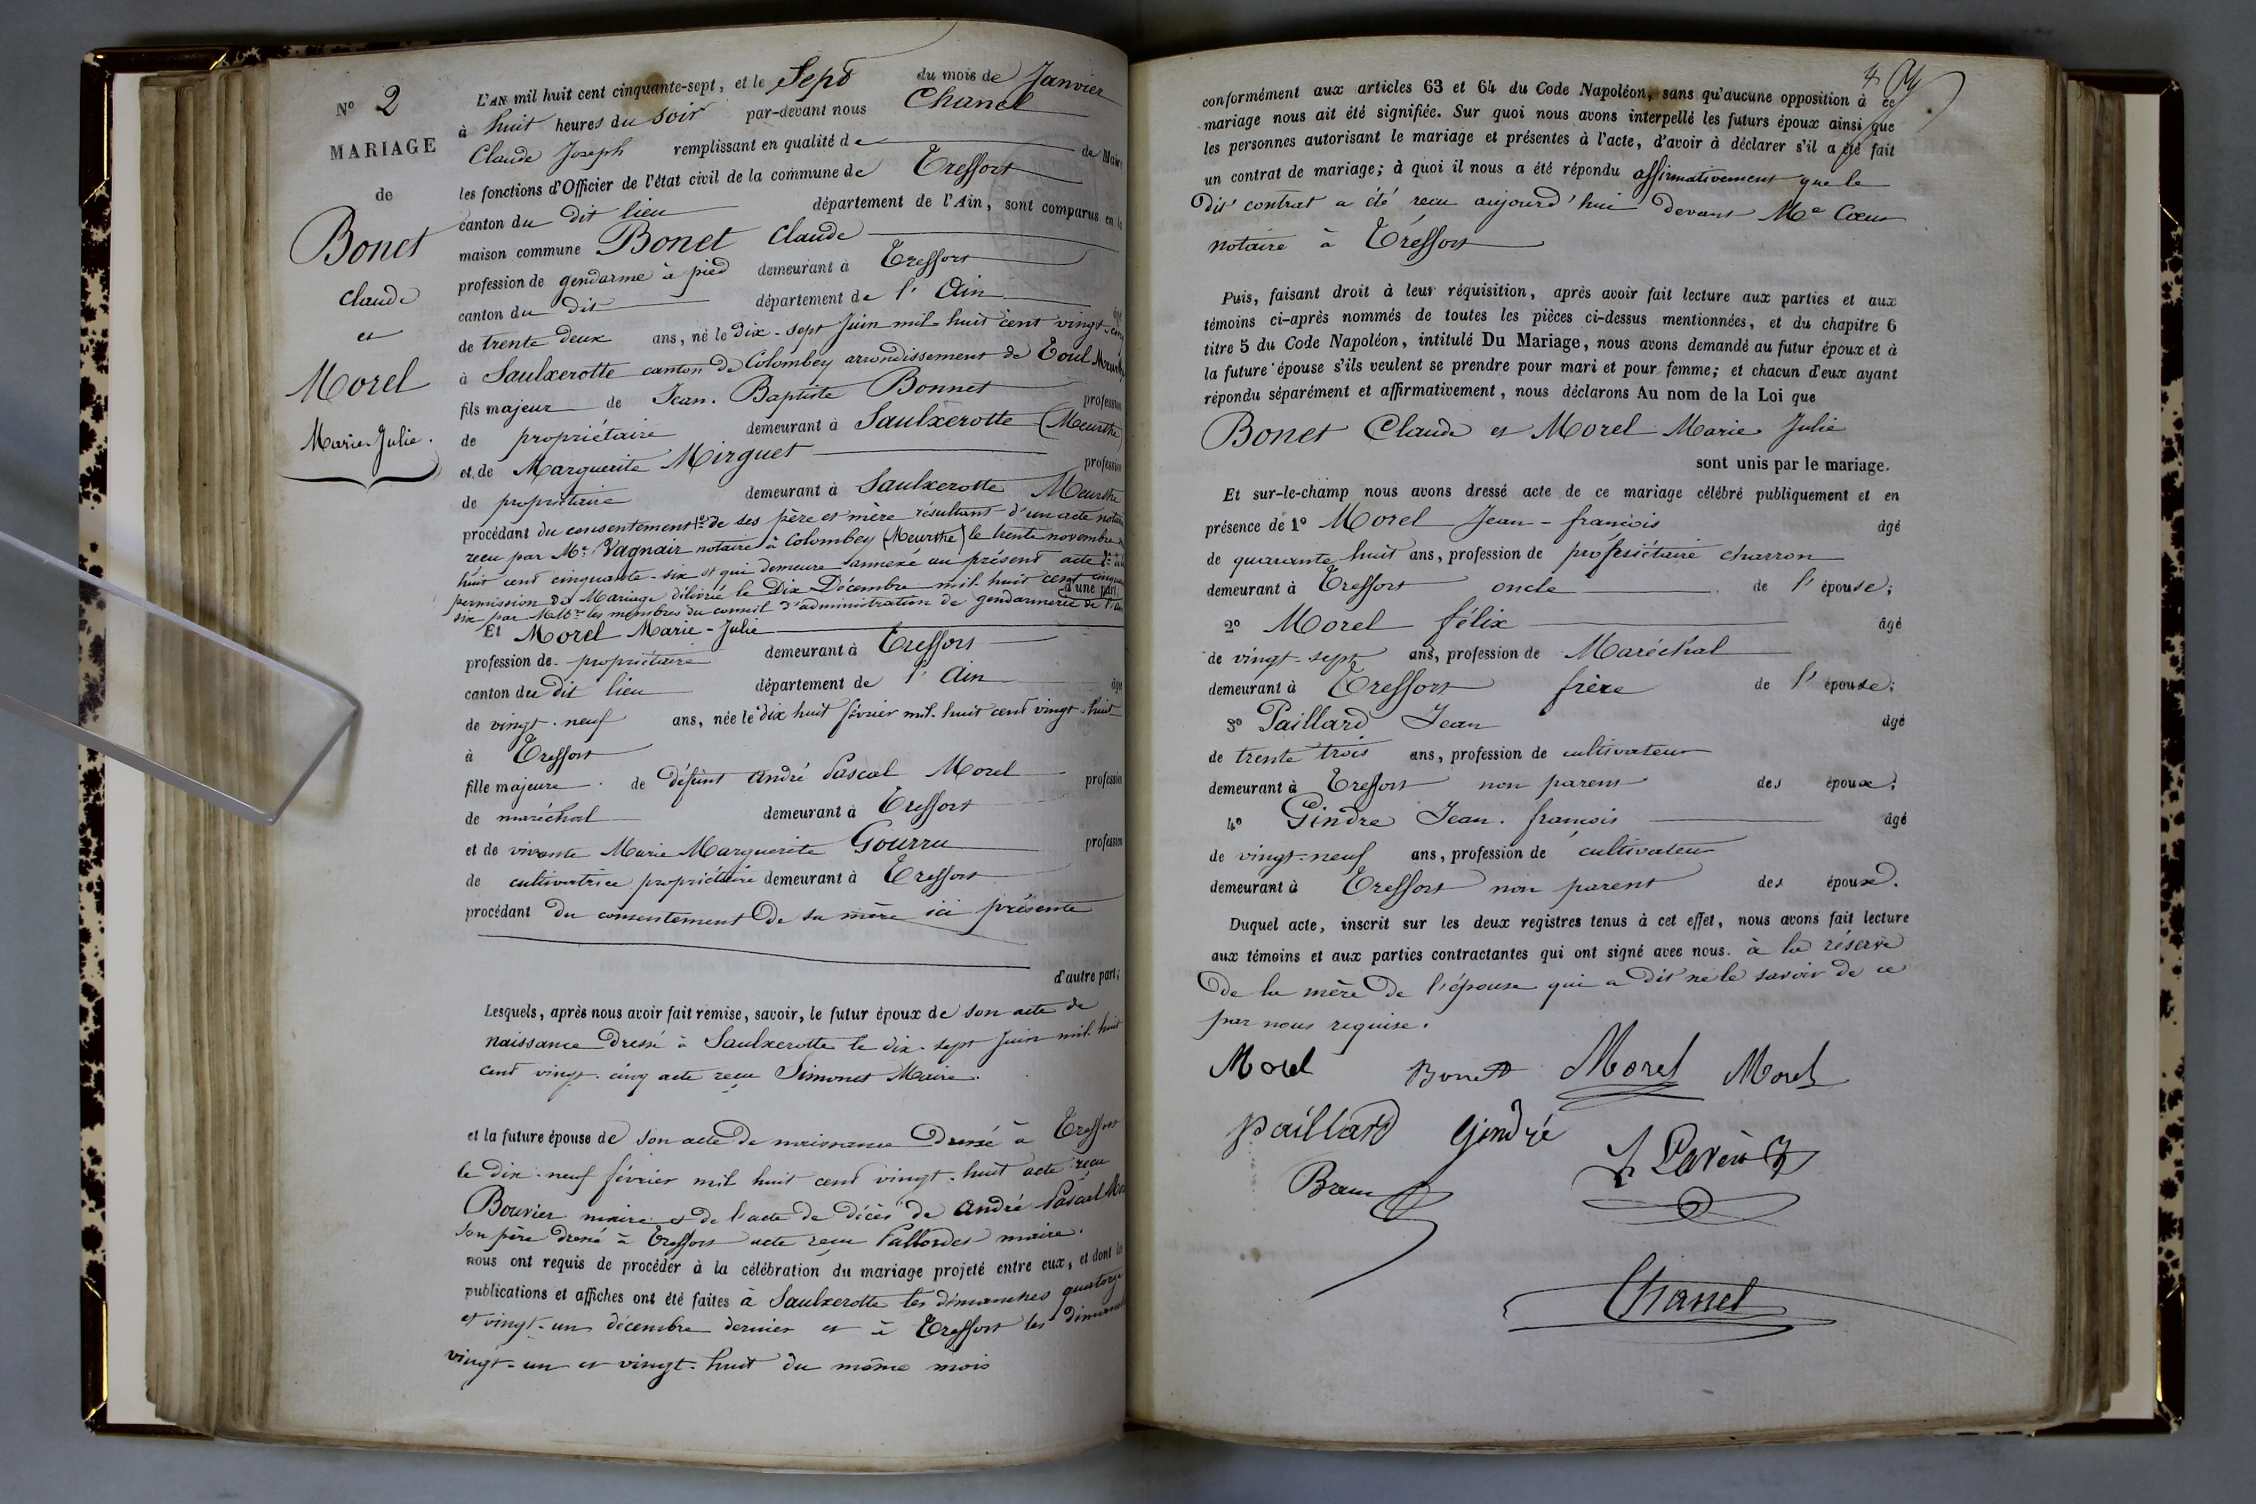 N° 2
MARIAGE
de
Bonet
Claude
et
Morel
Marie-Julie.
L'AN mil huit cent cinquante-sept, et le Sept du mois de Janvier
à huit heures du soir par-devant nous Chanel
Claude Joseph remplissant en qualité de de Maire
les fonctions d'Officier de l'état civil de la commune de Treffort
canton du dit lieu département de l'Ain, sont comparus en la
maison commune Bonet Claude
profession de gendarme à pied demeurant à Treffort
canton du dit département de l'Ain âgé
de trente deux ans, né le dix-sept Juin mil huit cent vingt-cinq
à Saulxerotte canton de Colombey arrondissement de Toul Meurthe
fils majeur de Jean-Baptiste Bonnet profession
de propriétaire demeurant à Saulxerotte (Meurthe)
et de Marguerite Mirguet profession
de propriétaire demeurant à Saulxerotte Meurthe
procédant du consentement 1° de ses père et mère résultant d'un acte
reçu par Me Vagnair notaire à Colombey (Meurthe) le trente novembre
huit cent cinquante-six et qui demeure annexé au présent acte 2°
permission de Mariage délivrée le Dix Décembre mil huit cent cinquante
d'une part;
six par MM. les membres du conseil d'administration de gendarmerie de l'Ain
Et Morel Marie-Julie
profession de propriétaire demeurant à Treffort
canton du dit lieu département de l'Ain âgé
de vingt-neuf ans, née le dix huit février mil huit cent vingt-huit
à Treffort
fille majeure de défunt André Pascal Morel profession
de maréchal demeurant à Treffort
et de vivante Marie Marguerite Gourru profession
de cultivatrice propriétaire demeurant à Treffort
procédant du consentement de sa mère ici présente
d'autre part;
Lesquels, après nous avoir fait remise, savoir, le futur époux de son acte de
naissance dressé à Saulxerotte le dix-sept Juin mil huit
cent vingt-cinq acte reçu Simonet Maire.
et la future épouse de son acte de naissance dressé à Treffort
le dix-neuf février mil huit cent vingt-huit acte reçu
Bouvier maire et de l'acte de décès de André Pascal
son père dressé à Treffort acte reçu maire.
nous ont requis de procéder à la célébration du mariage projeté entre eux, et dont les
publications et affiches ont été faites à Saulxerotte les dimanches quatorze
et vingt-un décembre dernier et à Treffort les dimanches
vingt-un et vingt-huit du même mois
4
conformément aux articles 63 et 64 du Code Napoléon, sans qu'aucune opposition à ce
mariage nous ait été signifiée. Sur quoi nous avons interpellé les futurs époux ainsi que
les personnes autorisant le mariage et présentes à l'acte, d'avoir à déclarer s'il a été fait
un contrat de mariage; à quoi il nous a été répondu affirmativement que le
dit contrat a été reçu aujourd'hui devant Me Cœur
notaire à Treffort
Puis, faisant droit à leur réquisition, après avoir fait lecture aux parties et aux
témoins ci-après nommés de toutes les pièces ci-dessus mentionnées, et du chapitre 6
titre 5 du Code Napoléon, intitulé Du Mariage, nous avons demandé au futur époux et à
la future épouse s'ils veulent se prendre pour mari et pour femme; et chacun d'eux ayant
répondu séparément et affirmativement, nous déclarons Au nom de la Loi que
Bonet Claude et Morel Marie Julie
sont unis par le mariage.
Et sur-le-champ nous avons dressé acte de ce mariage célébré publiquement et en
présence de 1° Morel Jean-françois âgé
de quarante huit ans, profession de propriétaire charron
demeurant à Treffort oncle de l'épouse;
2° Morel félix âgé
de vingt-sept ans, profession de Maréchal
demeurant à Treffort frère de l'épouse;
3° Paillard Jean âgé
de trente trois ans, profession de cultivateur
demeurant à Treffort non parent des époux;
4° Gindre Jean-françois âgé
de vingt-neuf ans, profession de cultivateur
demeurant à Treffort non parent des époux.
Duquel acte, inscrit sur les deux registres tenus à cet effet, nous avons fait lecture
aux témoins et aux parties contractantes qui ont signé avec nous. à la réserve
de la mère de l'épouse qui a dit ne le savoir de ce
par nous requise.
Morel Bonett Morel Morel
paillard Gindré
Chanel